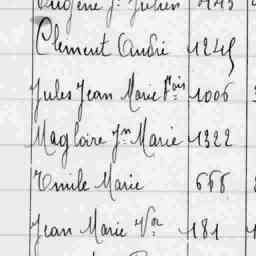 Eugène Jn Julien 445
Clément André 1245
Jules Jean Marie Fois 1006
Magloire Jn Marie 1322
Emile Marie 666
Jean Marie Vor 181